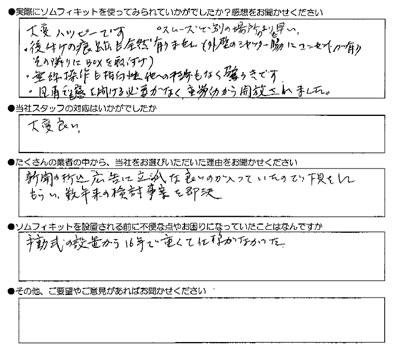 ●実際にソムフィキットを使ってみられていかがでしたか？感想をお聞かせください
大変ハッピーです ○スムーズで別の場所より早い。
・後付けの痕跡も全然有りません(外壁のシャッター脇にコンセントが有り
その隣りにBOXを取付け)
・無線操作も指向性他への影響もなく驚きです。
・見有難を開ける必要がなく、重労から開放されました。
●当社スタッフの対応はいかがでしたか
大変良い。
●たくさんの業者の中から、当社をお選びいただいた理由をお聞かせください
新聞の折込広告に立派な良いのが入っていたので
もらい、数年来の検討事案を即決
●ソムフィキットを設置される前に不便な点やお困りになっていたことはなんですか
手動式の設置から16年で重くて仕様がなかった
●その他、ご要望やご意見があればお聞かせください